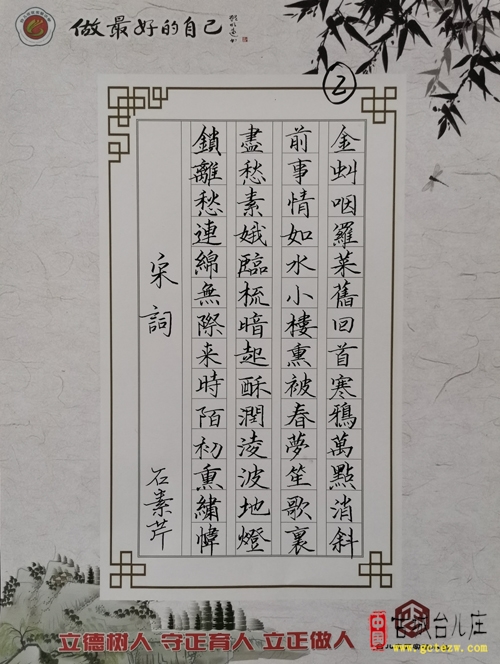 做最好的自己
2
金虯咽羅菜舊回首寒鴉萬點消斜
前事情如水小樓熏被春夢笙歌裏
盡愁素娥臨梳暗起酥潤淩波地燈
鎖離愁連綿無際来時陌初熏繡幃
宋詞
石素芹
立德树人 守正育人 立正做人
中國
古城台儿庄
www.gctezw.com